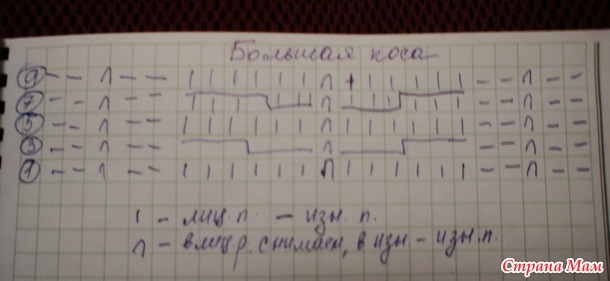 Большая коса
9 - - Λ - - | | | | | | Λ | | | | | | - - Λ - -
7 - - Λ - - | | | | Λ | | | - - Λ - -
5 - - Λ - - | | | | | | Λ | | | | | | - - Λ - -
3 - - Λ - - Λ - - Λ - -
1 - - Λ - - | | | | | | Λ | | | | | | - - Λ - -
| - лиц. п. — изн. п.
Λ - в лиц. р. снимаем, в изн. - изн. п.
Страна Мам